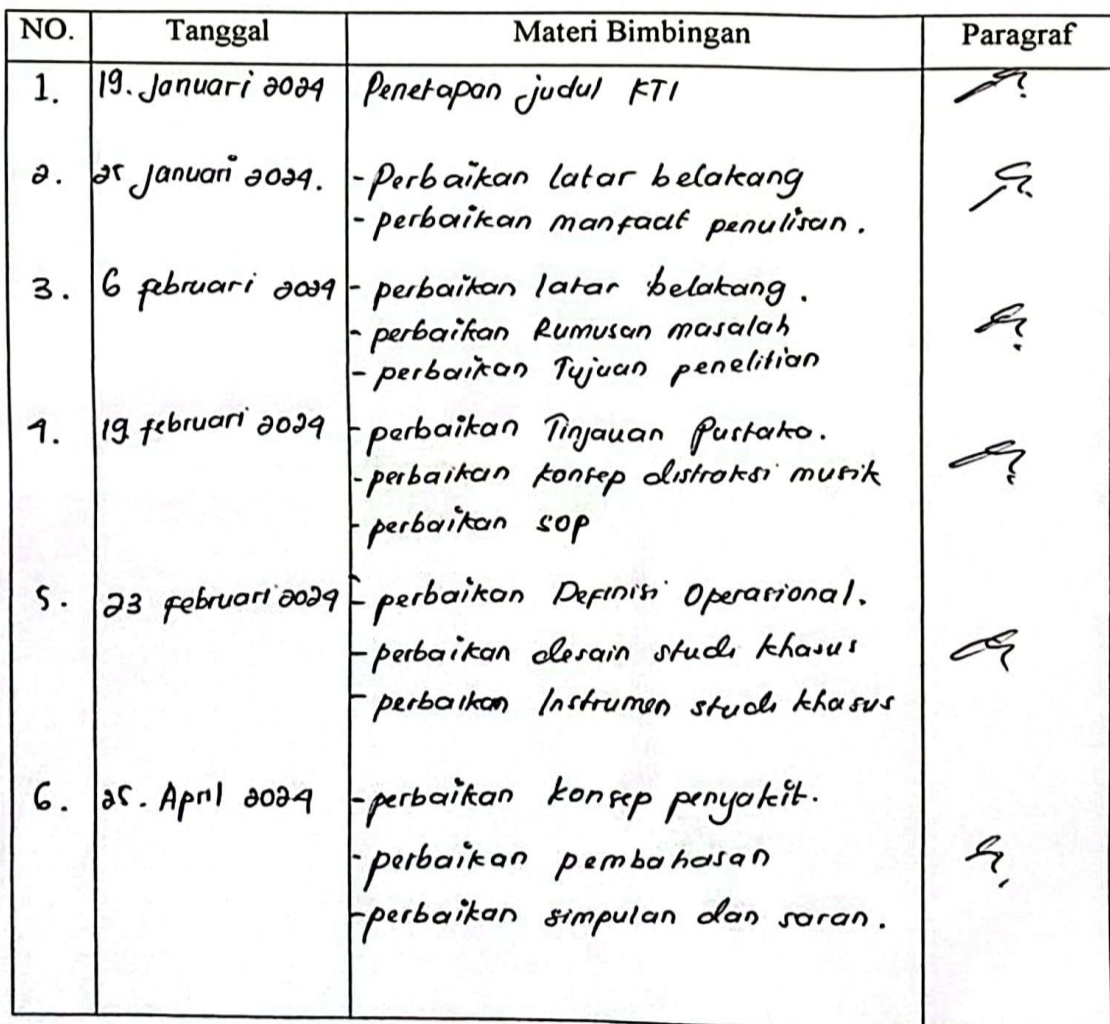 NO. Tanggal Materi Bimbingan Paragraf
1. 19. Januari 2024 Penetapan judul KTI
2. 25 Januari 2024. - Perbaikan latar belakang
- perbaikan manfaat penulisan.
3. 6 februari 2024 - perbaikan latar belakang.
- perbaikan Rumusan masalah
- perbaikan Tujuan penelitian
4. 19 februari 2024 - perbaikan Tinjauan Pustaka.
- perbaikan konsep distraksi musik
- perbaikan SOP
5. 23 februari 2024 - perbaikan Definisi Operasional.
- perbaikan desain studi khasus
- perbaikan Instrumen studi khasus
6. 25. April 2024 - perbaikan konsep penyakit.
- perbaikan pembahasan
- perbaikan simpulan dan saran.